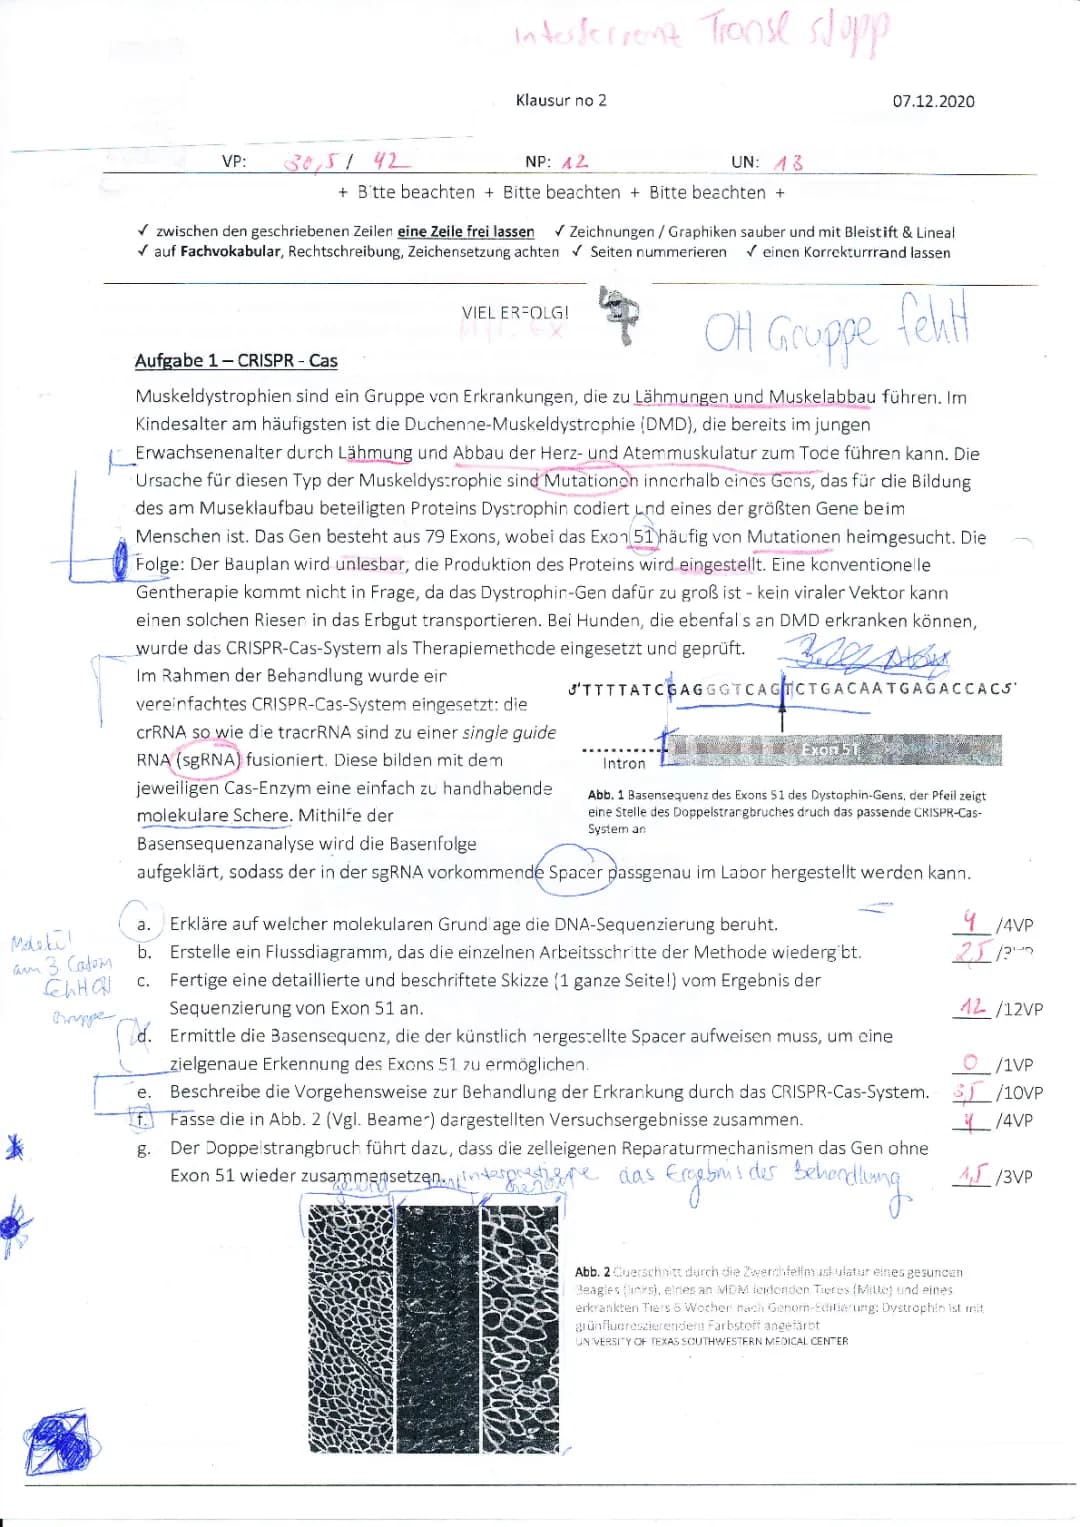 Interferrenz Transl stopp
Klausur no 2
07.12.2020
VP: 30,5 / 42 NP: 12 UN: 13
+ Bitte beachten + Bitte beachten + Bitte beachten +
✓ zwischen den geschriebenen Zeilen eine Zeile frei lassen ✓ Zeichnungen / Graphiken sauber und mit Bleistift & Lineal
✓ auf Fachvokabular, Rechtschreibung, Zeichensetzung achten ✓ Seiten nummerieren ✓ einen Korrekturrrand lassen
VIEL ERFOLG!
OH Gruppe fehlt
Aufgabe 1 – CRISPR - Cas
Muskeldystrophien sind ein Gruppe von Erkrankungen, die zu Lähmungen und Muskelabbau führen. Im
Kindesalter am häufigsten ist die Duchenne-Muskeldystrophie (DMD), die bereits im jungen
Erwachsenenalter durch Lähmung und Abbau der Herz- und Atemmuskulatur zum Tode führen kann. Die
Ursache für diesen Typ der Muskeldystrophie sind Mutationen innerhalb eines Gens, das für die Bildung
des am Museklaufbau beteiligten Proteins Dystrophin codiert und eines der größten Gene beim
Menschen ist. Das Gen besteht aus 79 Exons, wobei das Exon 51 häufig von Mutationen heimgesucht. Die
Folge: Der Bauplan wird unlesbar, die Produktion des Proteins wird eingestellt. Eine konventionelle
Gentherapie kommt nicht in Frage, da das Dystrophin-Gen dafür zu groß ist - kein viraler Vektor kann
einen solchen Riesen in das Erbgut transportieren. Bei Hunden, die ebenfalls an DMD erkranken können,
wurde das CRISPR-Cas-System als Therapiemethode eingesetzt und geprüft.
Im Rahmen der Behandlung wurde ein
vereinfachtes CRISPR-Cas-System eingesetzt: die
crRNA so wie die tracrRNA sind zu einer single guide
RNA (sgRNA) fusioniert. Diese bilden mit dem
jeweiligen Cas-Enzym eine einfach zu handhabende
molekulare Schere. Mithilfe der
Basensequenzanalyse wird die Basenfolge
aufgeklärt, sodass der in der sgRNA vorkommende Spacer passgenau im Labor hergestellt werden kann.
3'TTTTATCGAGGGTCAGTCTGACAATGAGACCAC5'
Intron
Exon 51
Abb. 1 Basensequenz des Exons 51 des Dystophin-Gens, der Pfeil zeigt
eine Stelle des Doppelstrangbruches druch das passende CRISPR-Cas-
System an
a. Erkläre auf welcher molekularen Grundlage die DNA-Sequenzierung beruht. 4 /4VP
b. Erstelle ein Flussdiagramm, das die einzelnen Arbeitsschritte der Methode wiedergibt. 2,5
am 3
fehlt OH
Gruppe
c. Fertige eine detaillierte und beschriftete Skizze (1 ganze Seite!) vom Ergebnis der
Sequenzierung von Exon 51 an. 12 /12VP
d. Ermittle die Basensequenz, die der künstlich hergestellte Spacer aufweisen muss, um eine
zielgenaue Erkennung des Exons 51 zu ermöglichen. 0 /1VP
e. Beschreibe die Vorgehensweise zur Behandlung der Erkrankung durch das CRISPR-Cas-System. 3,5 /10VP
f. Fasse die in Abb. 2 (Vgl. Beamer) dargestellten Versuchsergebnisse zusammen. 4 /4VP
g. Der Doppelstrangbruch führt dazu, dass die zelleigenen Reparaturmechanismen das Gen ohne
Exon 51 wieder zusammensetzen. das Ergebnis der Behandlung 1,5 /3VP
gesund
Abb. 2 Querschnitt durch die Zwerchfellmuskulatur eines gesunden
Beagles (links), eines an MDM leidenden Tieres (Mitte) und eines
erkrankten Tiers 6 Wochen nach Genom-Editierung; Dystrophin ist mit
grünfluoreszierendem Farbstoff angefärbt
UNIVERSITY OF TEXAS SOUTHWESTERN MEDICAL CENTER